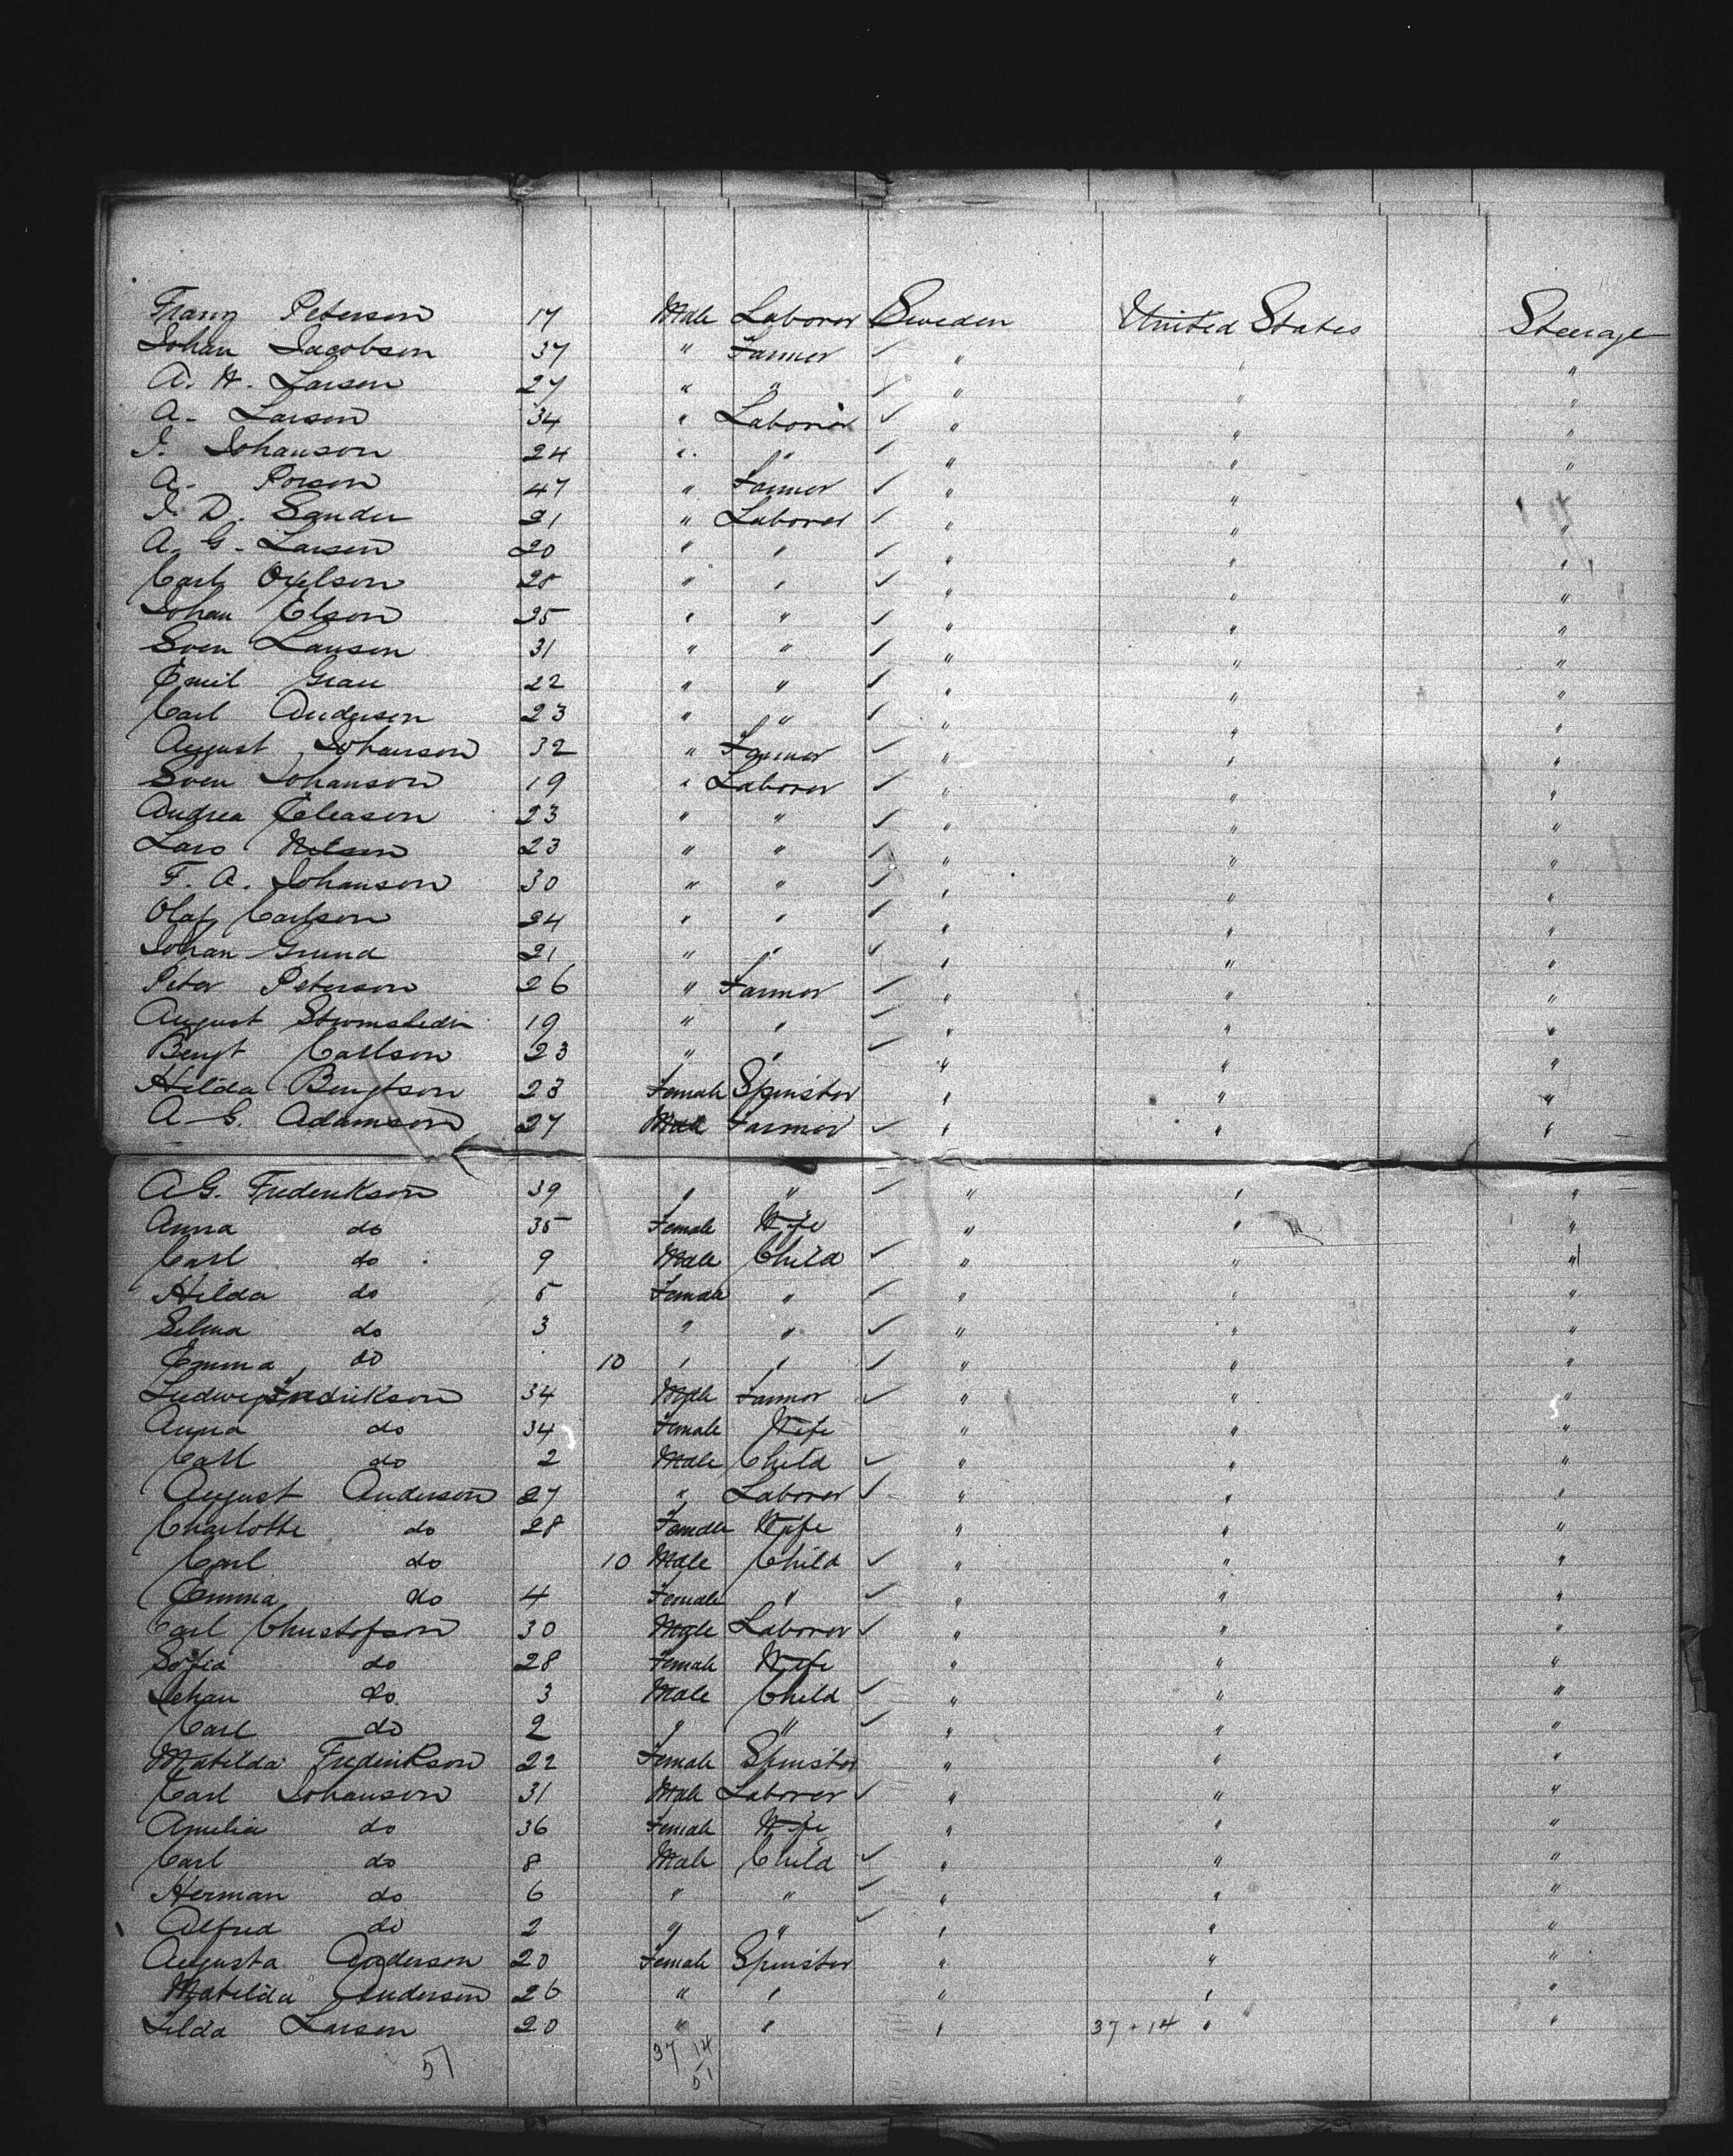 Franz Peterson 17 Male Laborer Sweden United States Steerage
Johan Jacobson 37 " Farmer ✓ " " "
A. W. Larson 27 " " ✓ " " "
A. Larson 34 " Laborer ✓ " " "
J. Johanson 24 " " ✓ " " "
A. Person 47 " Farmer ✓ " "
J. D. Sander 21 " Laborer ✓ " " "
A. G. Larsen 20 " " ✓ " " "
Carl Oxelson 28 " " ✓ " " "
Johan Elson 25 " " ✓ " " "
Sven Lauson 31 " " ✓ " " "
Emil Grau 22 " " ✓ " " "
Carl Anderson 23 " " ✓ " " "
August Johanson 32 " Farmer ✓ " " "
Sven Johanson 19 " Laborer ✓ " " "
Andrea Eleason 23 " " ✓ " " "
Lars Nelson 23 " " ✓ " " "
F. A. Johanson 30 " " ✓ " " "
Olaf Carlson 24 " " ✓ " " "
Johan Grund 21 " " ✓ " " "
Peter Peterson 26 " Farmer ✓ " " "
August 19 " " ✓ " " "
Bengt Carlson 23 " " ✓ " " "
Hilda Bengtson 23 Female Spinster " " "
A G. Adamson 27 Male Farmer ✓ " " "
A G. Frederikson 39 " " ✓ " " "
Anna do 35 Female Wife " " "
Carl do 9 Male Child ✓ " " "
Hilda do 5 Female " ✓ " " "
Selma do 3 " " ✓ " " "
Emma do 10 " " ✓ " " "
Ludwig Fredrikson 34 Male Farmer ✓ " " "
Anna do 34 Female Wife " " "
Carl do 2 Male Child ✓ " " "
August Anderson 27 " Laborer ✓ " " "
Charlotte do 28 Female Wife " " "
Carl do 10 Male Child ✓ " " "
Emma do 4 Female " ✓ " " "
Carl Christofson 30 Male Laborer ✓ " " "
Sofia do 28 Female Wife " " "
Johan do 3 Male Child ✓ " " "
Carl do 2 " " ✓ " " "
Matilda Frederikson 22 Female Spinster " " "
Carl Johanson 31 Male Laborer ✓ " " "
Amelia do 36 Female Wife " " "
Carl do 8 Male Child ✓ " " "
Herman do 6 " " ✓ " " "
Alfred do 2 " " ✓ " " "
Augusta Anderson 20 Female Spinster " " "
Matilda Anderson 26 " " " " "
Lilda Larsen 20 " " " 37 + 14 " "
51 37 14
51